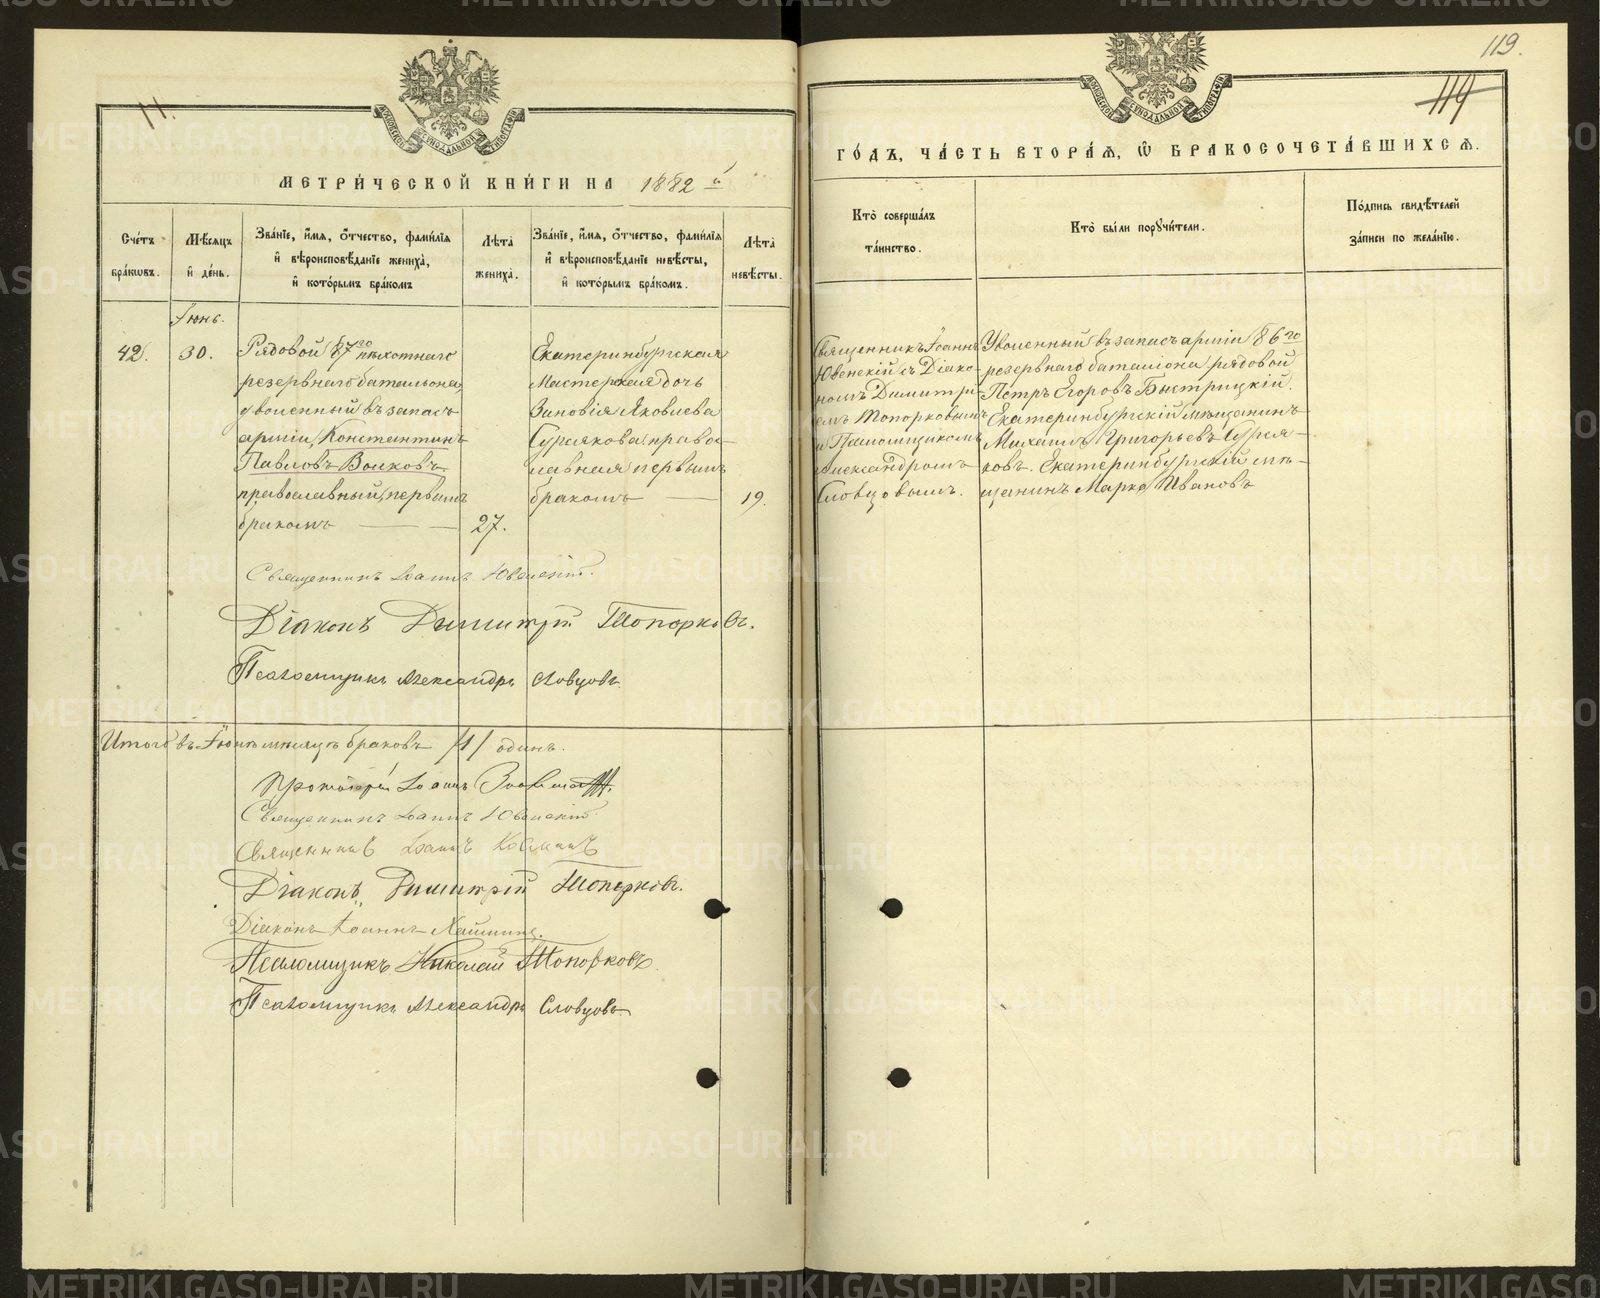 11.
119.
119
МЕТРИ́ЧЕСКОЙ КНИ́ГИ НА 1882 й
ГО́ДЪ, ЧА́СТЬ ВТОРА́Я, Ѿ БРАКОСОЧЕТА́ВШИХСЯ.
Сче́тъ бра́ковъ.
Мѣ́сяцъ и҆ де́нь.
Зва́нїе, и҆́мя, ѻ҆́тчество, фами́лїя
и҆ вѣроисповѣ́данїе жениха̀,
и҆ кото́рымъ бра́комъ
Лѣ́та жениха̀.
Зва́нїе, и҆́мя, ѻ҆́тчество, фами́лїя
и҆ вѣроисповѣ́данїе невѣ́сты,
и҆ кото́рымъ бра́комъ.
Лѣ́та невѣ́сты.
Кто̀ соверша́лъ
та́инство.
Кто̀ бы́ли поручи́тели.
По́дпись свидѣ́телей
за́писи по жела́нїю.
Іюнь.
42.
30.
Рядовой 87го пѣхотнаго
резервнаго баталіона,
уволенный въ запасъ
арміи, Константинъ
Павловъ Волковъ,
православный, первымъ
бракомъ
27.
Екатеринбургская
мастерская дочь
Зиновія Яковлева
Сурсякова, право-
славная первымъ
бракомъ
19.
Священникъ Іоаннъ
Ювенскій съ Діако-
номъ Димитрі-
емъ Топорковымъ
и Псаломщикомъ
Александромъ
Словцовымъ.
Уволенный въ запасъ арміи 86го
резервнаго баталіона рядовой
Петръ Егоровъ Быстрицкій.
Екатеринбургскій мѣщанинъ
Михаилъ Григорьевъ Сурся-
ковъ. Екатеринбургскій мѣ-
щанинъ Марко Ивановъ
Священникъ Іоаннъ Ювенскій.
Діаконъ Димитрій Топорковъ.
Псаломщикъ Александръ Словцовъ.
Итого въ Іюнѣ мѣсяцѣ браковъ /1/ одинъ.
Протоіерей Іоаннъ
Священникъ Іоаннъ Ювенскій.
Священникъ Іоаннъ
Діаконъ Димитрій Топорковъ.
Діаконъ Іоаннъ
Псаломщикъ Николай Топорковъ.
Псаломщикъ Александръ Словцовъ.
METRIKI.GASO-URAL.RU